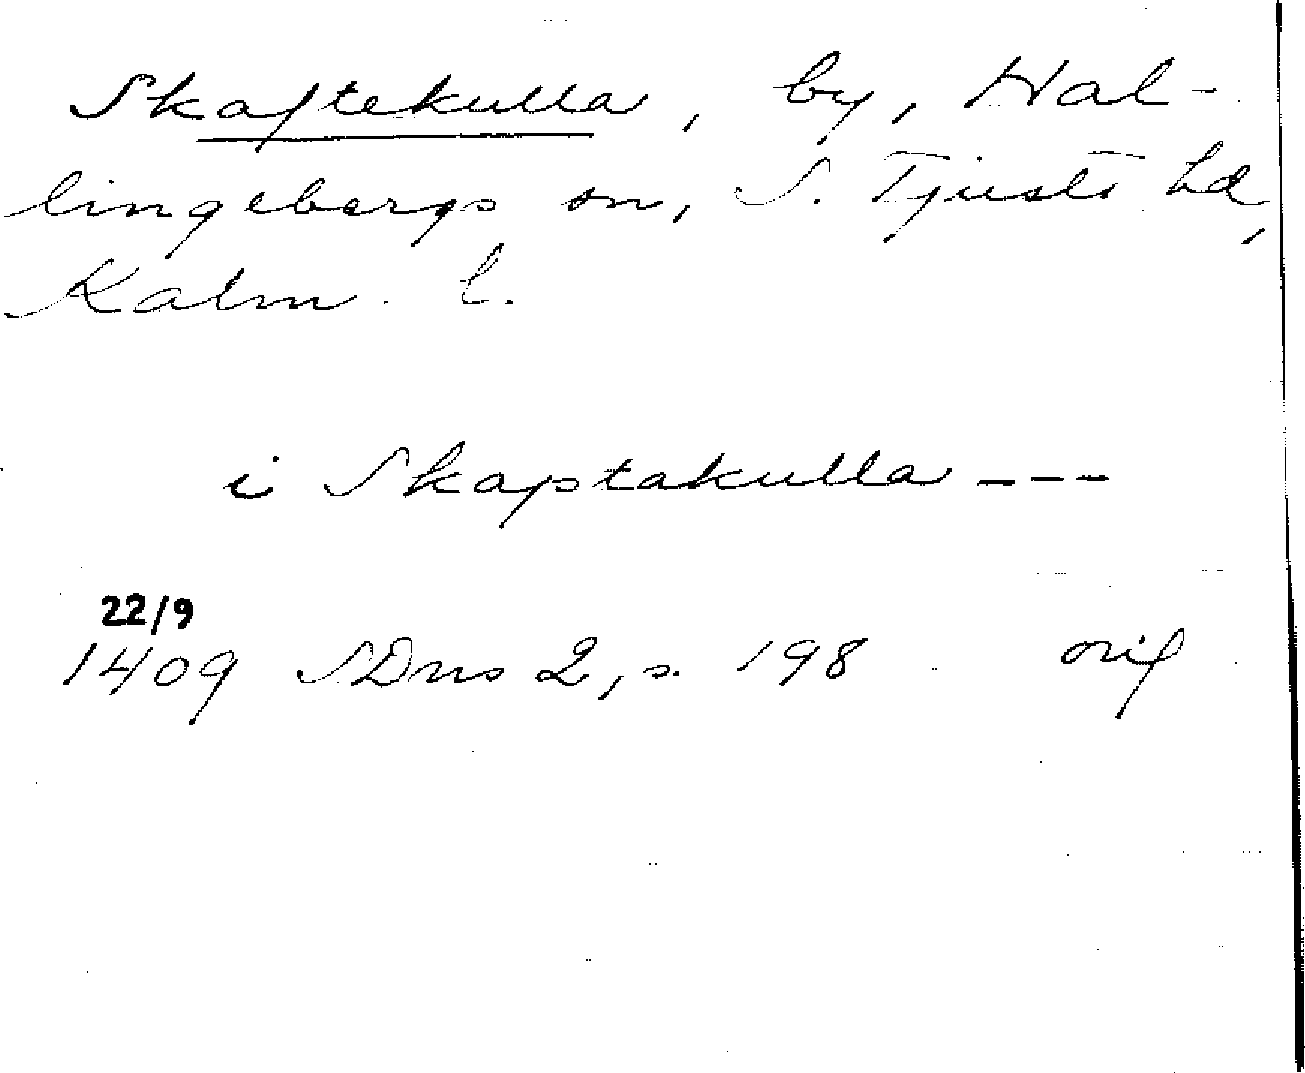 Skaftekulla, by, Hal-
lingebergs sn, S. Tjusts hd,
Kalm. l.
i Skaptakulla ---
22/9
1409 SDns 2, s. 198 orig